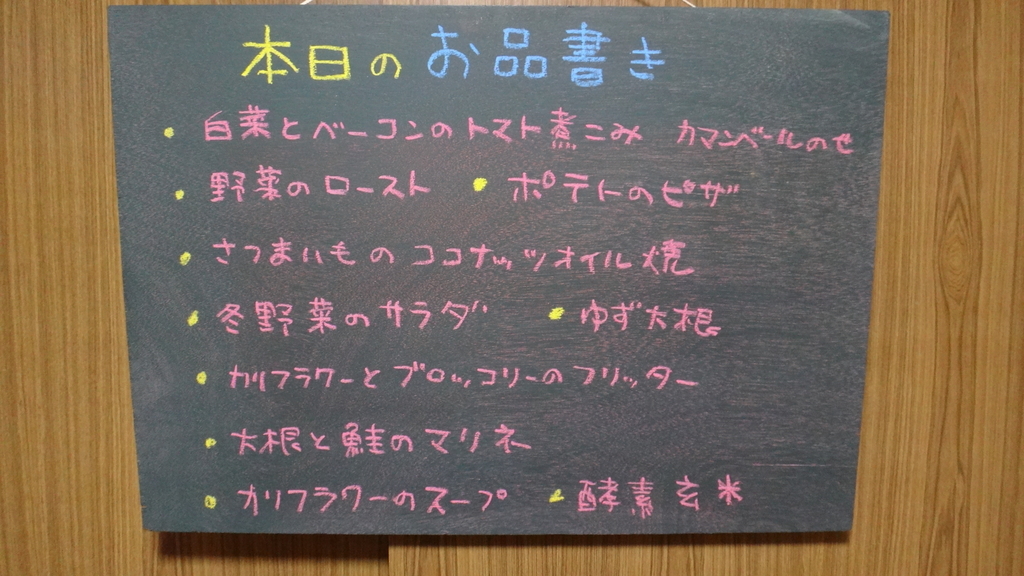 本日の お品書き
• 白菜とベーコンのトマト煮こみ カマンベールのせ
• 野菜のロースト • ポテトのピザ
• さつまいもの ココナッツオイル焼
• 冬野菜のサラダ • ゆず大根
• カリフラワーと ブロッコリーの フリッター
• 大根と鮭のマリネ
• カリフラワーのスープ • 酵素玄米